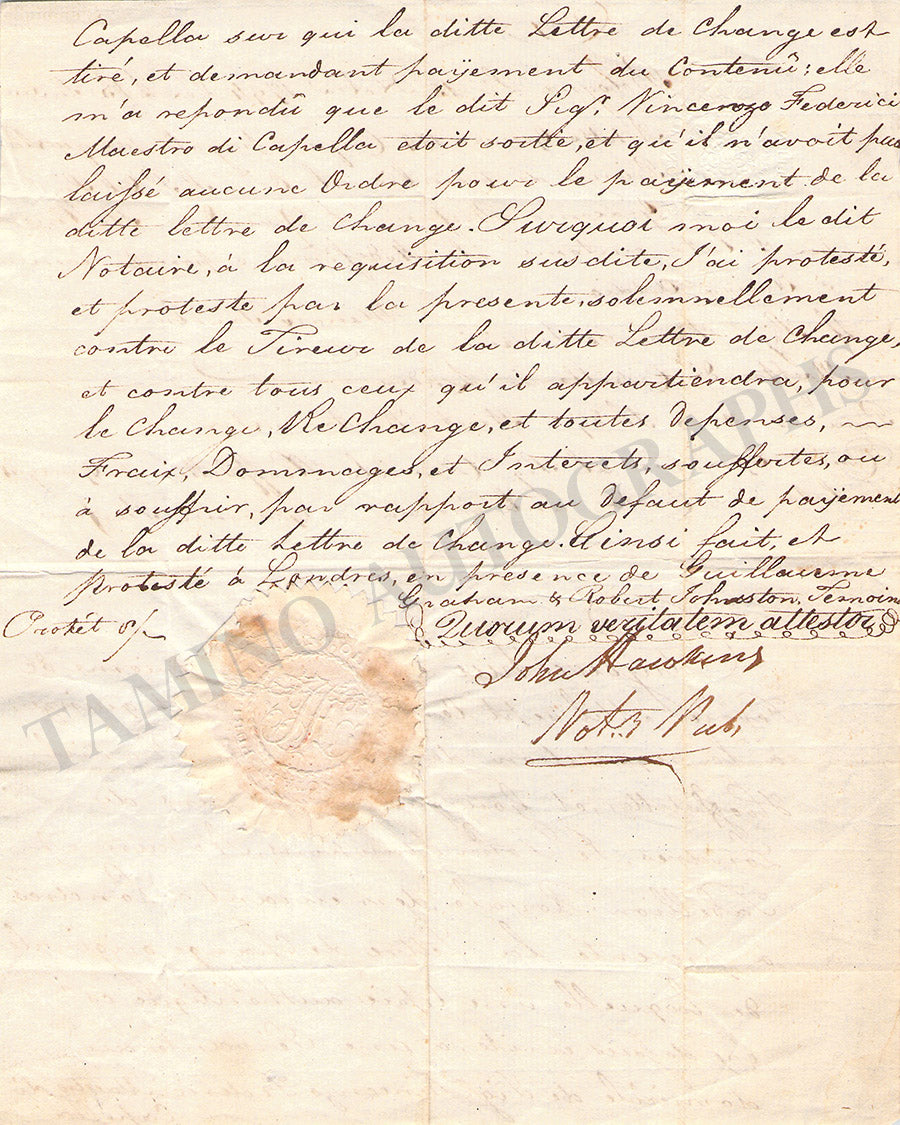 Capella sur qui la ditte Lettre de Change est
tiré, et demandant payëment du Contenû; elle
m'a repondû que le dit Sigr. Vincenzo Federici
Maestro di Capella etoit sortie, et qu'il n'avoit pas
laissé aucune Ordre pour le payëment de la
ditte lettre de Change. Surquoi moi le dit
Notaire, à la requisition susdite, J'ai protesté,
et proteste par la presente, solemnellement
contre le Tireur de la ditte Lettre de Change,
et contre tous ceux qu'il appartiendra, pour
le Change, ReChange, et toutes depenses,
Fraix, Dommages, et Interets, souffertes, ou
à souffrir, par rapport au defaut de payëment
de la ditte Lettre de Change. Ainsi fait, et
Protesté à Londres, en presence de Guillaume
Graham & Robert Johnston, Temoins
Protét 8/
Quorum veritatem attestor
John Hawkins
Not.y Pub.
TAMINO AUTOGRAPHS